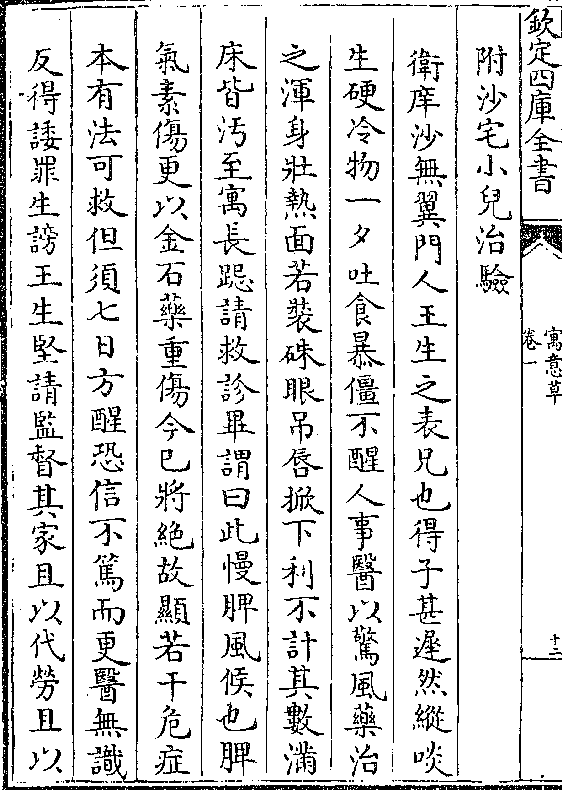 欽定四庫全書
寓意草
卷一
十二
附沙宅小兒治驗
衛庠沙無翼門人王生之表兄也得子甚遲然縱啖
生硬冷物一夕吐食暴僵不醒人事醫以驚風藥治
之渾身壯熱面若裝硃眼吊唇掀下利不計其數滿
床皆汚至寓長跽請救診畢謂曰此慢脾風候也脾
氣素傷更以金石藥重傷今已將絶故顯若干危症
本有法可救但須七日方醒恐信不篤而更醫無識
反得諉罪生謗王生堅請監督其家且以代勞且以